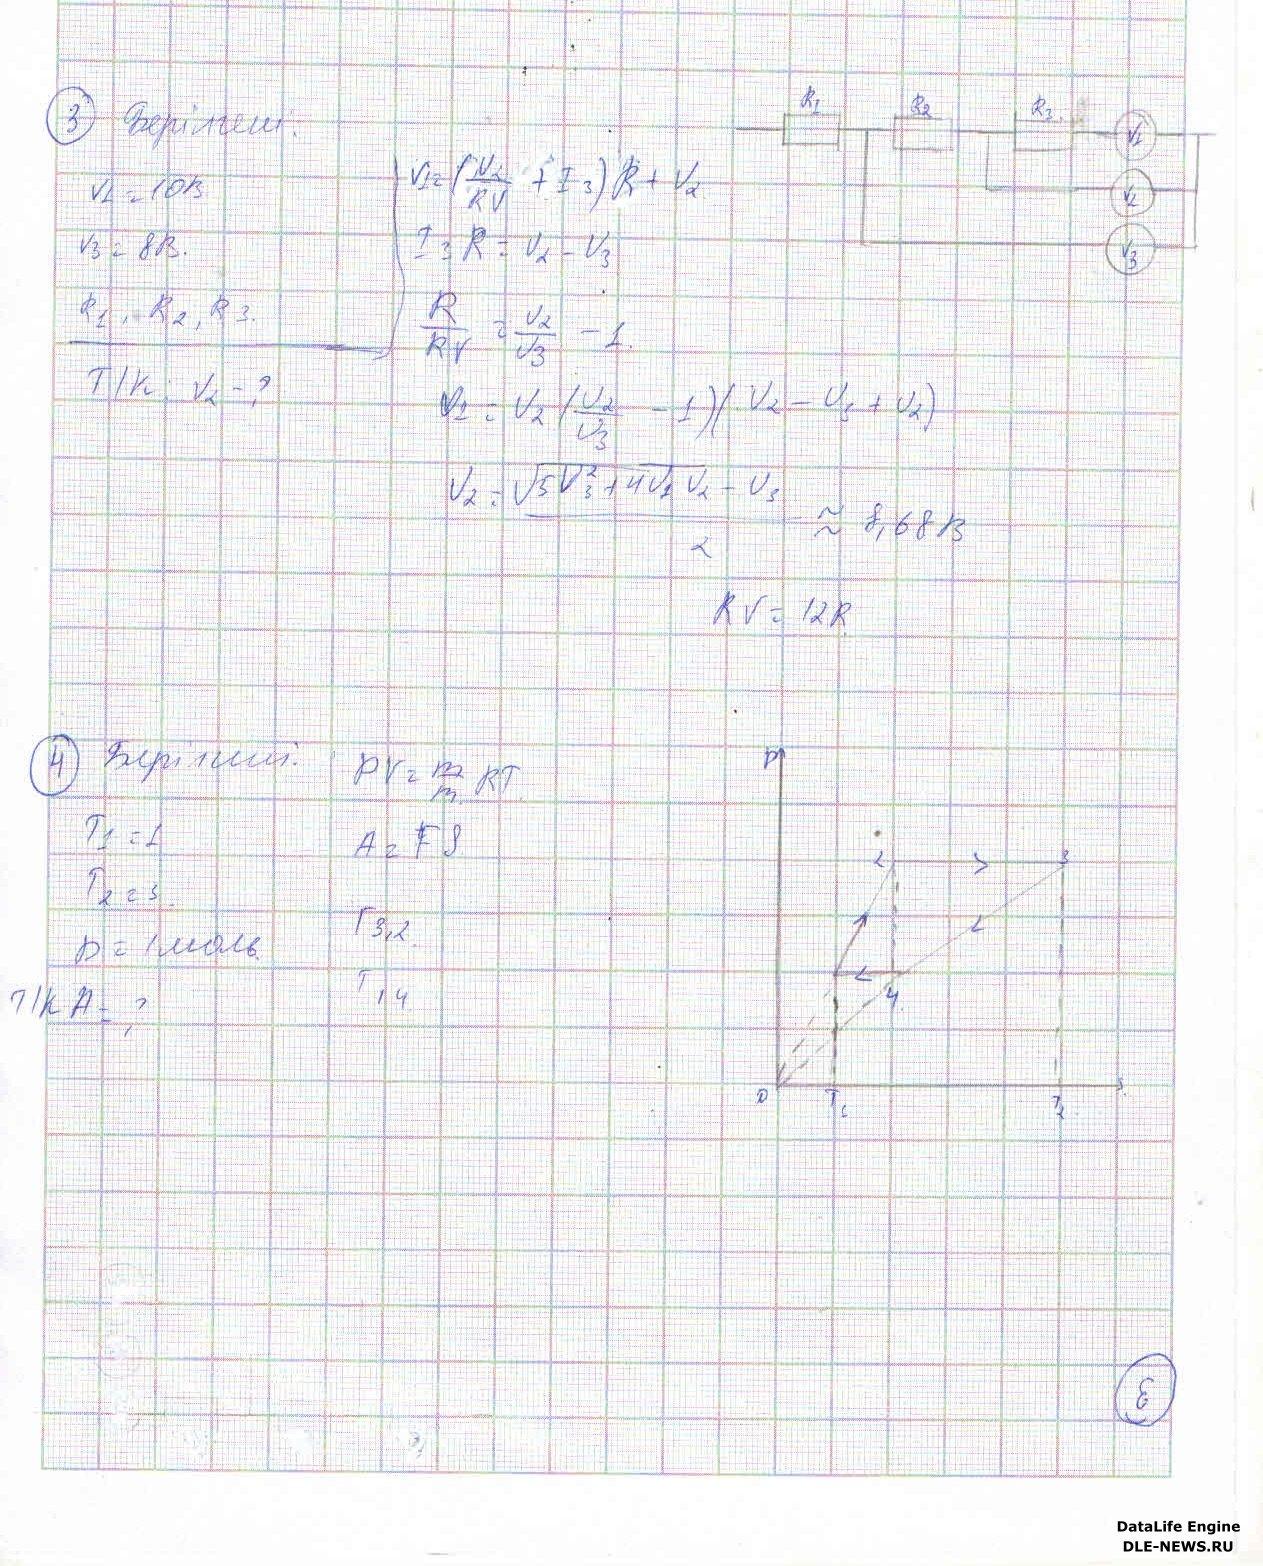 3 Берілгені:
V1 = 10В
V3 = 8В.
R1, R2, R3.
Т/К: V2 - ?
V1 = (V2/RV + I3) R + V2
I3 R = V2 - V3
R/RV = V2/V3 - 1.
V1 = V2 (V2/V3 - 1)(V2 - V3 + V2)
V2 = √5V3² + 4V1 V2 - V3 / 2 ≈ 8,68В
RV = 12R
R1 R2 R3.
V1
V2
V3
4 Берілгені:
T1 = 1
T2 = 3.
= 1 моль.
Т/К А = ?
PV = m/m RT.
A = FS
T3,2.
T1,4.
P
2 3
4.
0 T1 T2
DataLife Engine
DLE-NEWS.RU